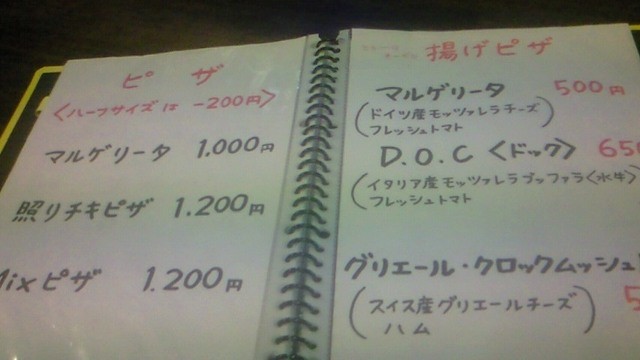 ピザ
<ハーフサイズは -200円>
マルゲリータ 1.000円
照りチキピザ 1.200円
Mixピザ 1.200円
揚げピザ
マルゲリータ 500円
(ドイツ産モッツァレラチーズ
フレッシュトマト)
D.O.C <ドック> 650
(イタリア産モッツァレラブッファラ<水牛>
フレッシュトマト)
グリエール・クロックムッシュ
(スイス産グリエールチーズ
ハム) 5